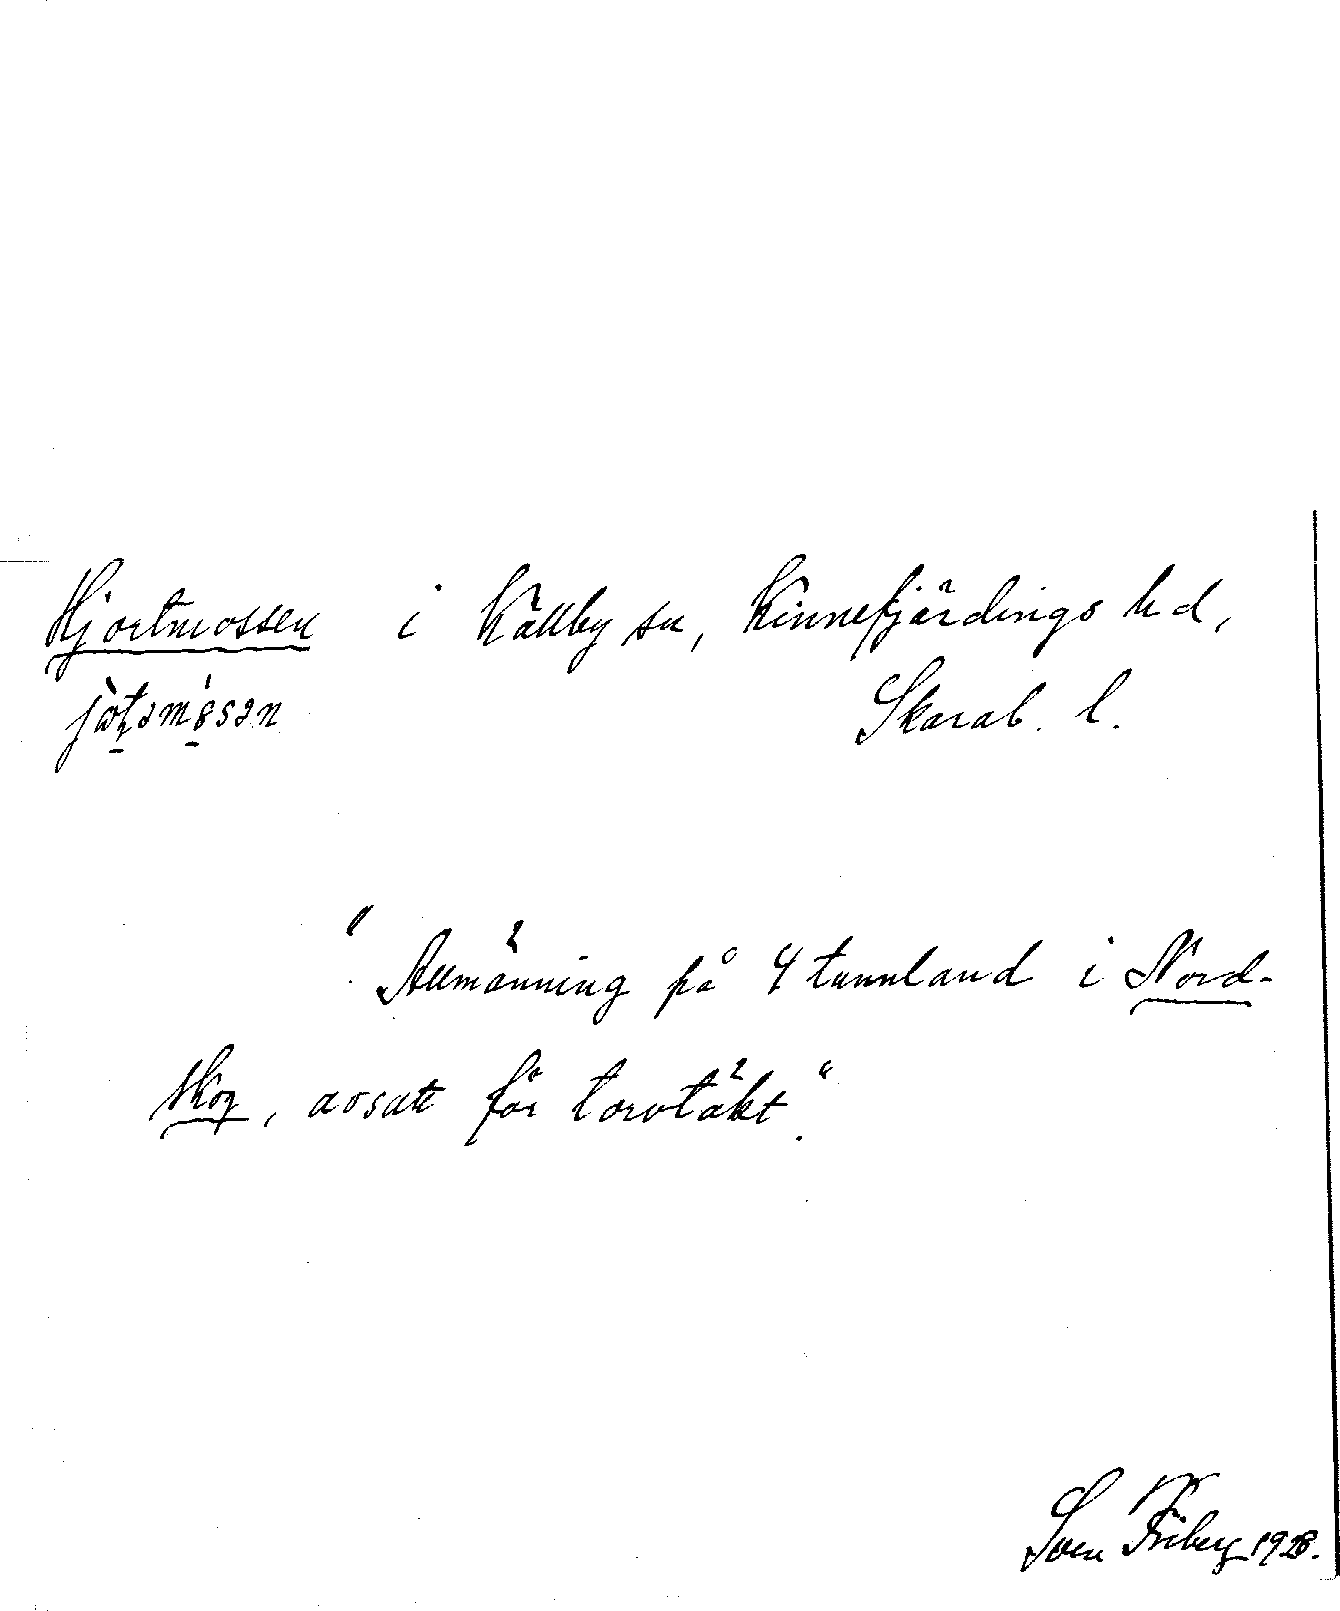 Hjortmossen i Källby sn, Kinnefjärdings hd,
Skarab. l.
"Allmänning på 4 tunnland i Nord-
skog, avsatt för torvtäkt."
Sven Friberg 1928.